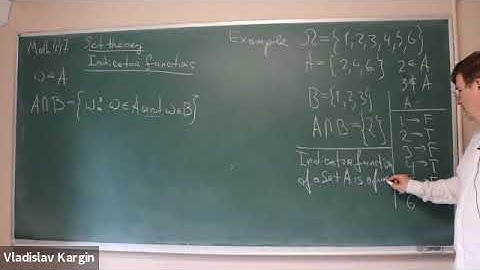 Math 447
Set theory
Indicator functions
ω ∈ A
A∩B = {ω: ω ∈ A and ω ∈ B}
Example Ω = {1,2,3,4,5,6}
A = {2,4,6}
2 ∈ A
3 ∉ A
B = {1,2,3}
A∩B = {2}
A
1 → F
2 → T
3 → F
→ T
6
Indicator function
of a Set A is a fun
Vladislav Kargin